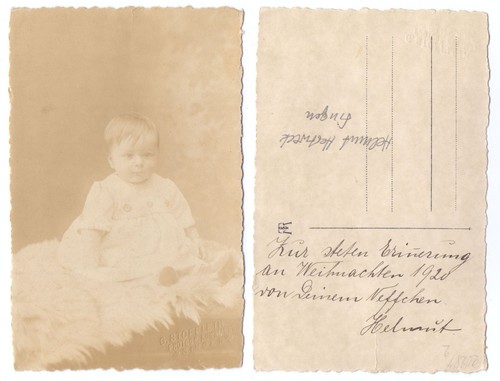 Helmut Hertweck
Zur steten Erinerung
an Weihnachten 1920
von Deinem Neffchen
Helmut